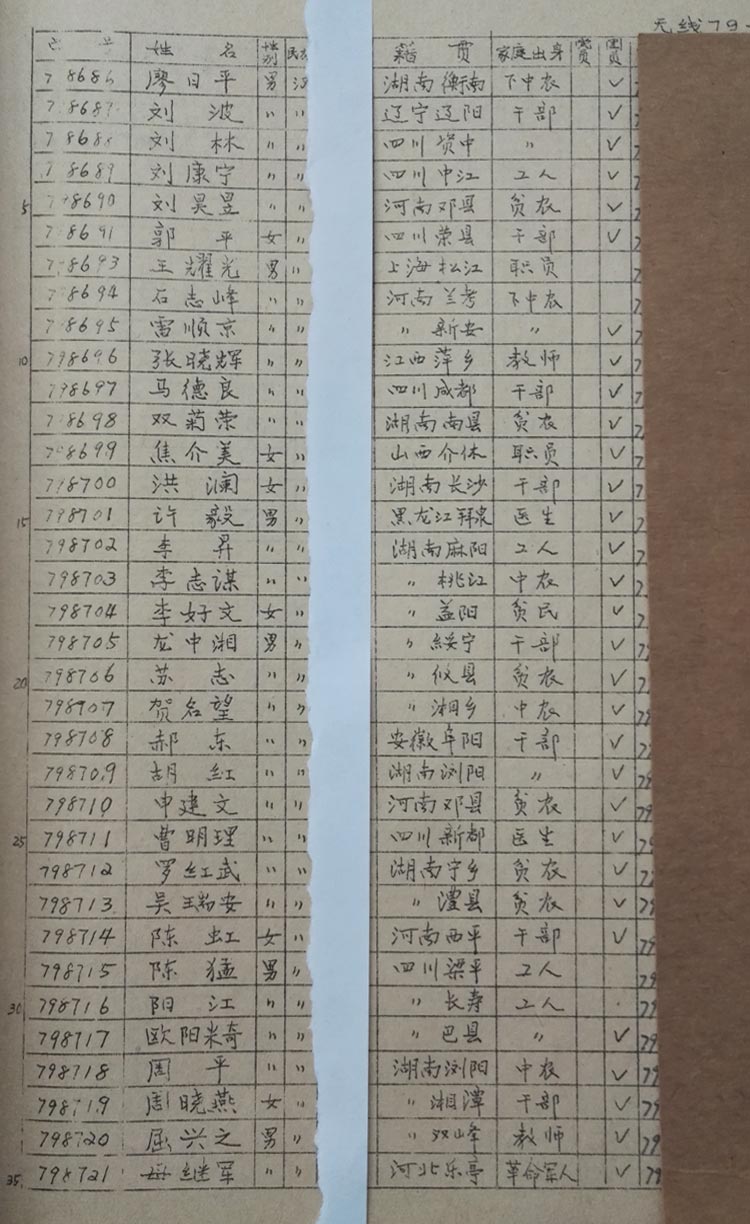 无线79-
姓 名 性别 民 籍 贯 家庭出身 党员 团员
7 8686 廖日平 男 汉 湖南衡南 下中农 ✓
7 8687 刘 波 〃 〃 辽宁辽阳 干部 ✓
7 8688 刘 林 〃 〃 四川资中 〃 ✓
7 8689 刘康宁 〃 〃 四川中江 工人 ✓
5 7 8690 刘昊昱 〃 〃 河南邓县 贫农 ✓
7 8691 郭 平 女 〃 四川荣县 干部 ✓
7 8693 王耀光 男 〃 上海松江 职员
7 8694 石志峰 〃 〃 河南兰考 下中农
7 8695 雷顺京 〃 〃 〃 新安 〃 ✓
10 798696 张晓辉 〃 〃 江西萍乡 教师 ✓
798697 马德良 〃 〃 四川成都 干部 ✓
7 8698 双菊荣 〃 〃 湖南南县 贫农 ✓
798699 焦介美 女 〃 山西介休 职员 ✓
798700 洪 澜 女 〃 湖南长沙 干部 ✓
15 798701 许 毅 男 〃 黑龙江拜泉 医生 ✓
798702 李 昇 〃 〃 湖南麻阳 工人 ✓
798703 李志谋 〃 〃 〃 桃江 中农 ✓
798704 李好文 女 〃 〃 益阳 贫民 ✓
798705 龙中湘 男 〃 〃 绥宁 干部 ✓
20 798706 苏 志 〃 〃 〃 攸县 贫农 ✓
798707 贺名望 〃 〃 〃 湘乡 中农 ✓
798708 郝 东 〃 〃 安徽阜阳 干部 ✓
798709 胡 红 〃 〃 湖南浏阳 〃 ✓
798710 申建文 〃 〃 河南邓县 贫农 ✓
25 798711 曹明理 〃 〃 四川新都 医生 ✓
798712 罗红武 〃 〃 湖南宁乡 贫农 ✓
798713 吴瑞安 〃 〃 〃 澧县 贫农 ✓
798714 陈 虹 女 〃 河南西平 干部 ✓
798715 陈 猛 男 〃 四川梁平 工人
30 798716 阳 江 〃 〃 〃 长寿 工人
798717 欧阳米奇 〃 〃 〃 巴县 〃 ✓
798718 周 平 〃 〃 湖南浏阳 中农 ✓
798719 周晓燕 女 〃 〃 湘潭 干部 ✓
798720 屈兴之 男 〃 〃 双峰 教师 ✓
35 798721 母继军 〃 〃 河北乐亭 革命军人 ✓